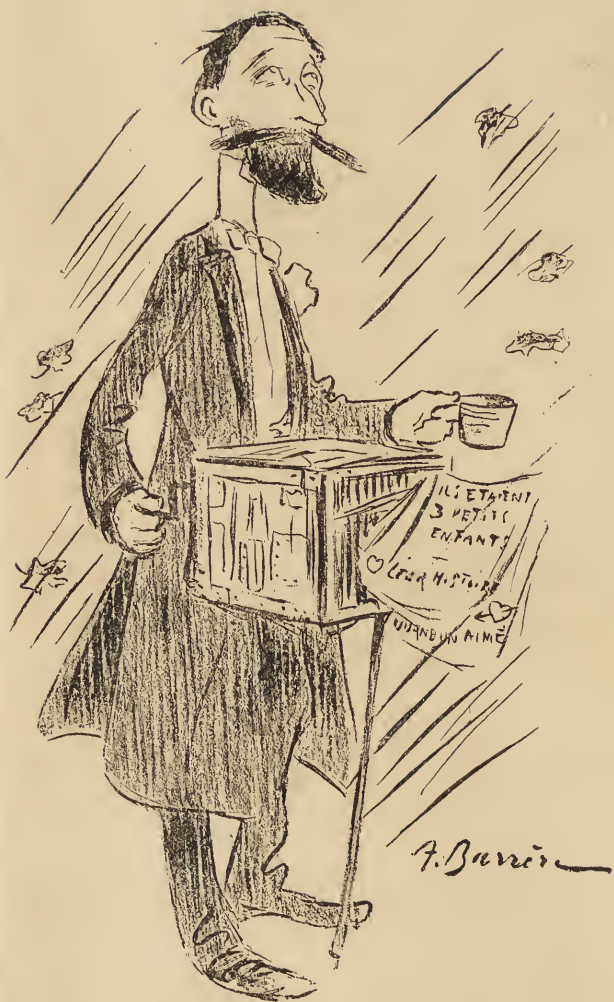 ILS ETAIENT
3 PETITS
ENFANTS
LEUR HISTOIRE
AIMÉ
A. Barrère